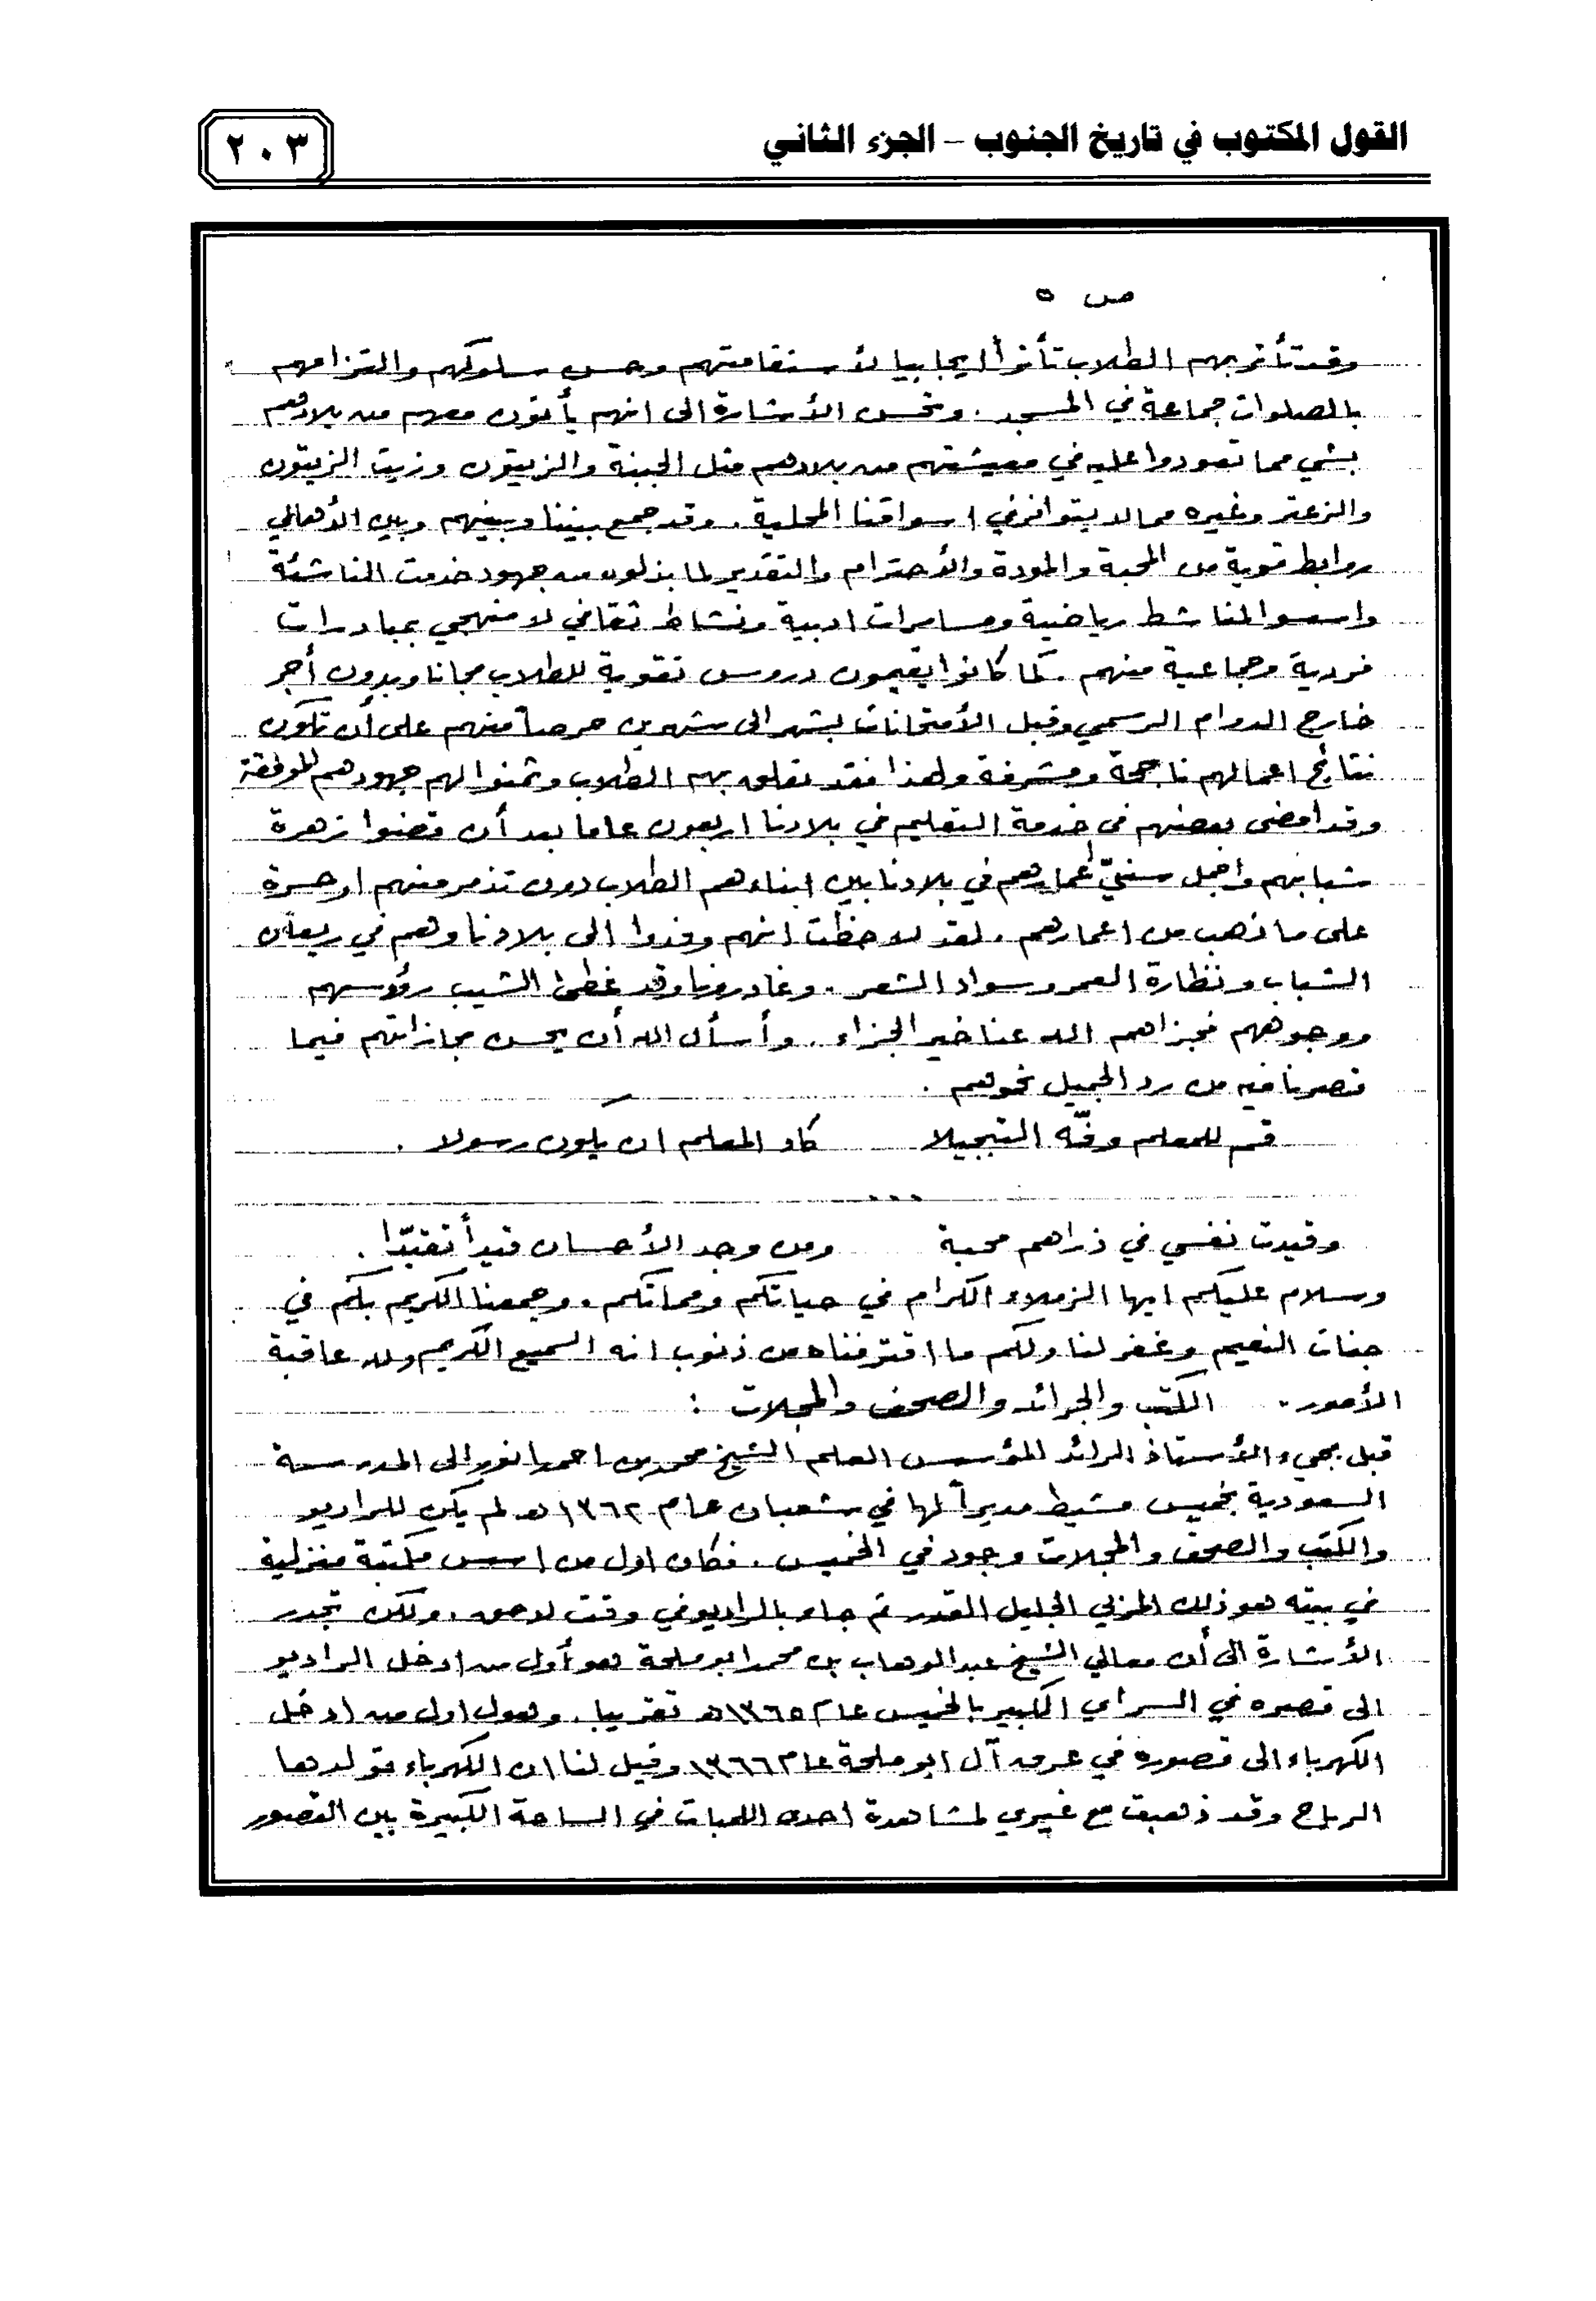 القول المكتوب في تاريخ الجنوب – الجزء الثاني
٢٠٣
ص ٥
وقد تأثر بهم الطلاب تأثراً ايجابيا لأستقامتهم وحسن سلوكهم والتزامهم
بالصلوات جماعة في المسجد . وتحسن الأشارة الى انهم يأتون معهم من بلادهم
بشي مما تعودوا عليه في معيشتهم من بلادهم مثل الجبنة والزيتون وزيت الزيتون
والزعتر وغيره مما لا يتوافر في اسواقنا المحلية . وقد جمع بيننا وبينهم وبين الأهالي
روابط قوية من المحبة والمودة والأحترام والتقدير لما بذلوه من جهود خدمت الناشئة
واسسوا لمناشط رياضية ومسامرات ادبية ونشاط ثقافي لا منهجي بمبادرات
فردية وجماعية منهم . كما كانوا يقيمون دروس تقوية للطلاب مجانا وبدون أجر
خارج الدوام الرسمي وقبل الأمتحانات بشهر الى شهرين حرصاً منهم على أن تكون
نتائج اعمالهم ناجحة ومشرفة ولهذا فقد تعلق بهم الطلاب وثمنوا لهم جهودهم الموفقة
وقد امضى بعضهم في خدمة التعليم في بلادنا اربعون عاما بعد أن قضوا زهرة
شبابهم واجمل سنيّ أعمارهم في بلادنا بين ابناءهم الطلاب دون تذمر منهم او حسرة
على ما ذهب من اعمارهم . لقد لاحظت انهم وفدوا الى بلادنا وهم في ريعان
الشباب ونظارة العمر وسواد الشعر . وغادرونا وقد غطى الشيب رؤوسهم
ووجوههم فجزاهم الله عنا خير الجزاء . وأسأل الله أن يحسن مجازاتهم فيما
قصرنا فيه من رد الجميل نحوهم .
قم للمعلم وفّه التبجيلا كاد المعلم ان يكون رسولا .
...
وقيدت نفسي في ذراهم محبة ومن وجد الأحسان قيداً تقيّدا .
وسلام عليكم ايها الزملاء الكرام في حياتكم ومماتكم . وجمعنا الكريم بكم في
جنات النعيم وغفر لنا ولكم ما اقترفناه من ذنوب انه السميع الكريم ولله عاقبة
الأمور . الكتب والجرائد والصحف والمجلات :
قبل مجيء الأستاذ الرائد المؤسس العلم الشيخ محمد بن احمد انور الى المدرسة
السعودية بخميس مشيط مديراً لها في شعبان عام ١٣٦٢هـ لم يكن للراديو
والكتب والصحف والمجلات وجود في الخميس . فكان اول من اسس مكتبة منزلية
في بيته هو ذلك المربي الجليل القدر ثم جاء بالراديو في وقت لاحق . ولكن تجدر
الأشارة الى أن معالي الشيخ عبدالوهاب بن محمد ابو ملحة هو أول من ادخل الراديو
الى قصره في السراي الكبير بالخميس عام ١٣٦٥هـ تقريبا . وهو اول من ادخل
الكهرباء الى قصوره في عرق آل ابو ملحة عام ١٣٦٦ وقيل لنا ان الكهرباء تولدها
الرياح وقد ذهبت مع غيري لمشاهدة احدى اللمبات في الساحة الكبيرة بين القصور